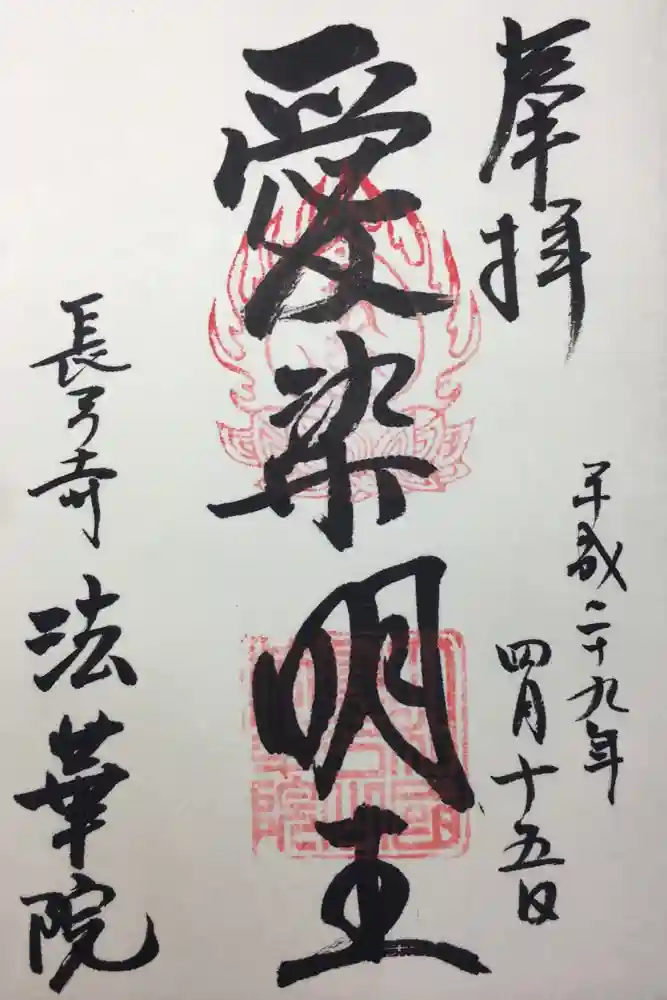 奉拝
平成二十九年
四月十五日
愛染明王
長弓寺
法華院